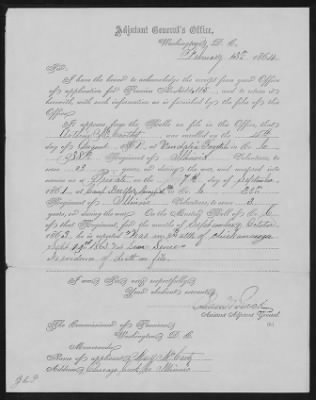 Adjutant General's Office,
Washington, D. C.
February 13th, 1864.
Sir:
I have the honor to acknowledge the receipt from your Office
of application for Pension No. and to return it
herewith, with such information as is furnished by the files of this
Office.
It appears from the Rolls on file in this Office, that
was enrolled on the
day of August, 186, at in Co.
38th Regiment of Illinois Volunteers, to
serve 3 years, or during the war, and mustered into
service as a Private on the day of September,
1861, at Camp Co. 38th
Regiment of Illinois Volunteers, to serve 3
years, or during the war. On the Muster Roll of Co.
of that Regiment, for the months of September & October,
1863, he is reported "Was in Battle of Chickamauga
Sept 19th 1863 Not Seen Since"
No evidence of death on file.
I am, Sir, very respectfully,
Your obedient servant,
Assistant Adjutant General.
The Commissioner of Pensions,
Washington, D. C.
Memoranda:
Name of applicant, Mary McCarty
Address, Chicago, Cook Co. Illinois